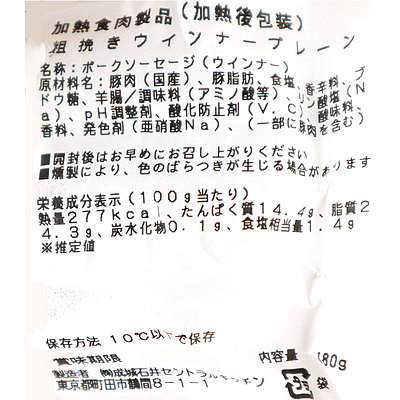 加熱食肉製品(加熱後包装)
粗挽きウインナープレーン
名称:ポークソーセージ(ウインナー)
原材料名:豚肉(国産)、豚脂肪、食塩、香辛料、ブ
ドウ糖、羊腸/調味料(アミノ酸等)、リン酸塩(N
a)、pH調整剤、酸化防止剤(V.C)、酸味料、
香料、発色剤(亜硝酸Na)、(一部に豚肉を含む)
■開封後はお早めにお召し上がりください
■燻製により、色のばらつきが生じる場合があります
栄養成分表示(100g当たり)
熱量277kcal、たんぱく質14.4g、脂質2
4.3g、炭水化物0.1g、食塩相当量1.4g
※推定値
保存方法 10℃以下で保存
賞味期限 内容量 180g
製造者 ㈱成城石井セントラルキッチン
東京都町田市鶴間8-1-1 袋